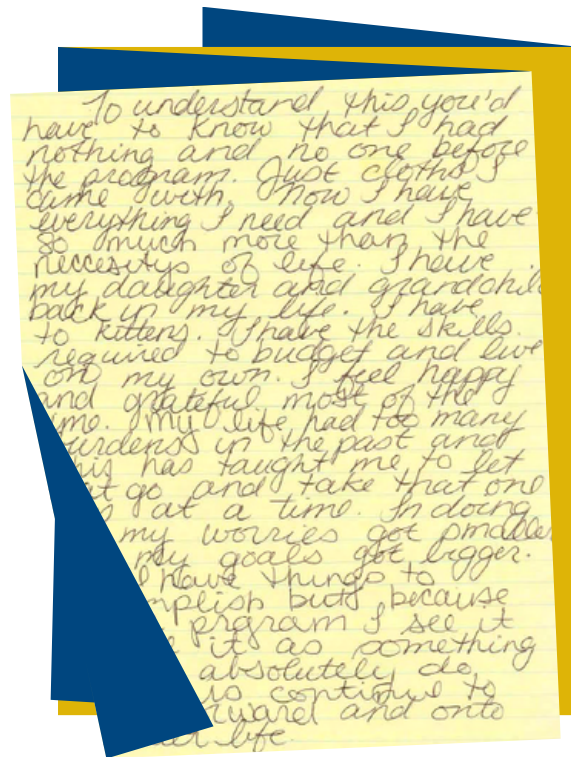 To understand this you'd
have to know that I had
nothing and no one before
the program. Just cloths I
came with. Now I have
everything I need and I have
so much more than the
neccesitys of life. I have
my daughter and grandchil
back in my life. I have
to kittens. I have the skills
required to budget and live
on my own. I feel happy
and grateful most of the
ime. My life had too many
urdens in the past and
his has taught me to let
t go and take that one
at a time. In doing
my worries got smaller
my goals got bigger.
I have things to
mplish but because
prgram I see it
it as something
absolutely do
continue to
rward and onto
life.